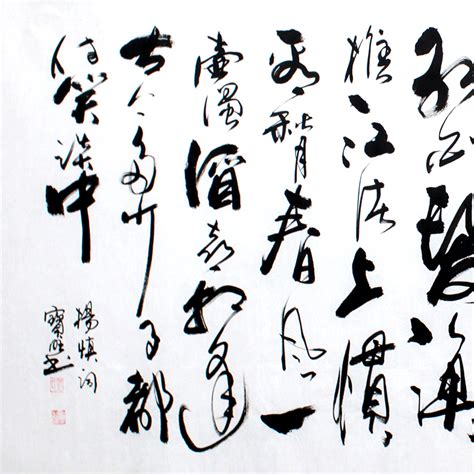 红白髮漁
樵江渚上慣
看秋月春風一
壺濁酒喜相逢
古今多少事都
付笑談中
楊慎詞
寶旺书